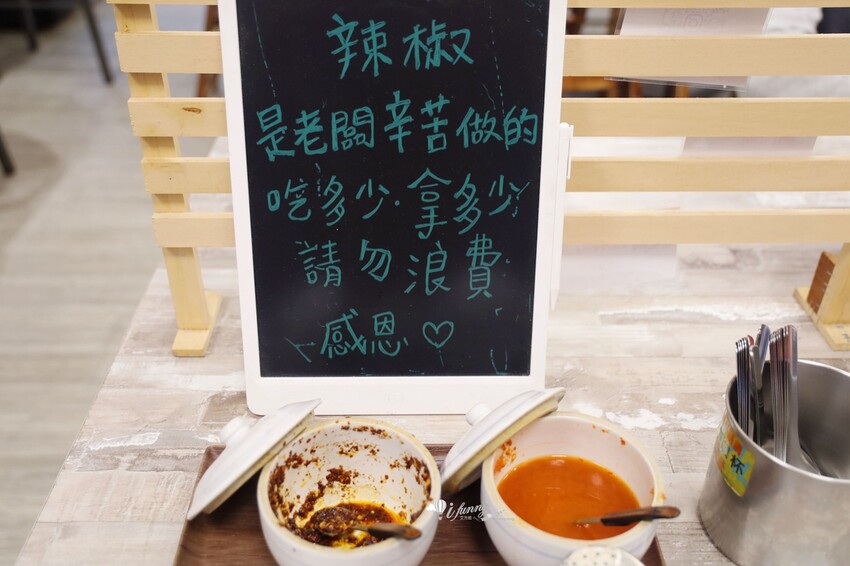 辣椒
是老闆辛苦做的
吃多少·拿多少
請勿浪費
感恩♡
杯
ifunny